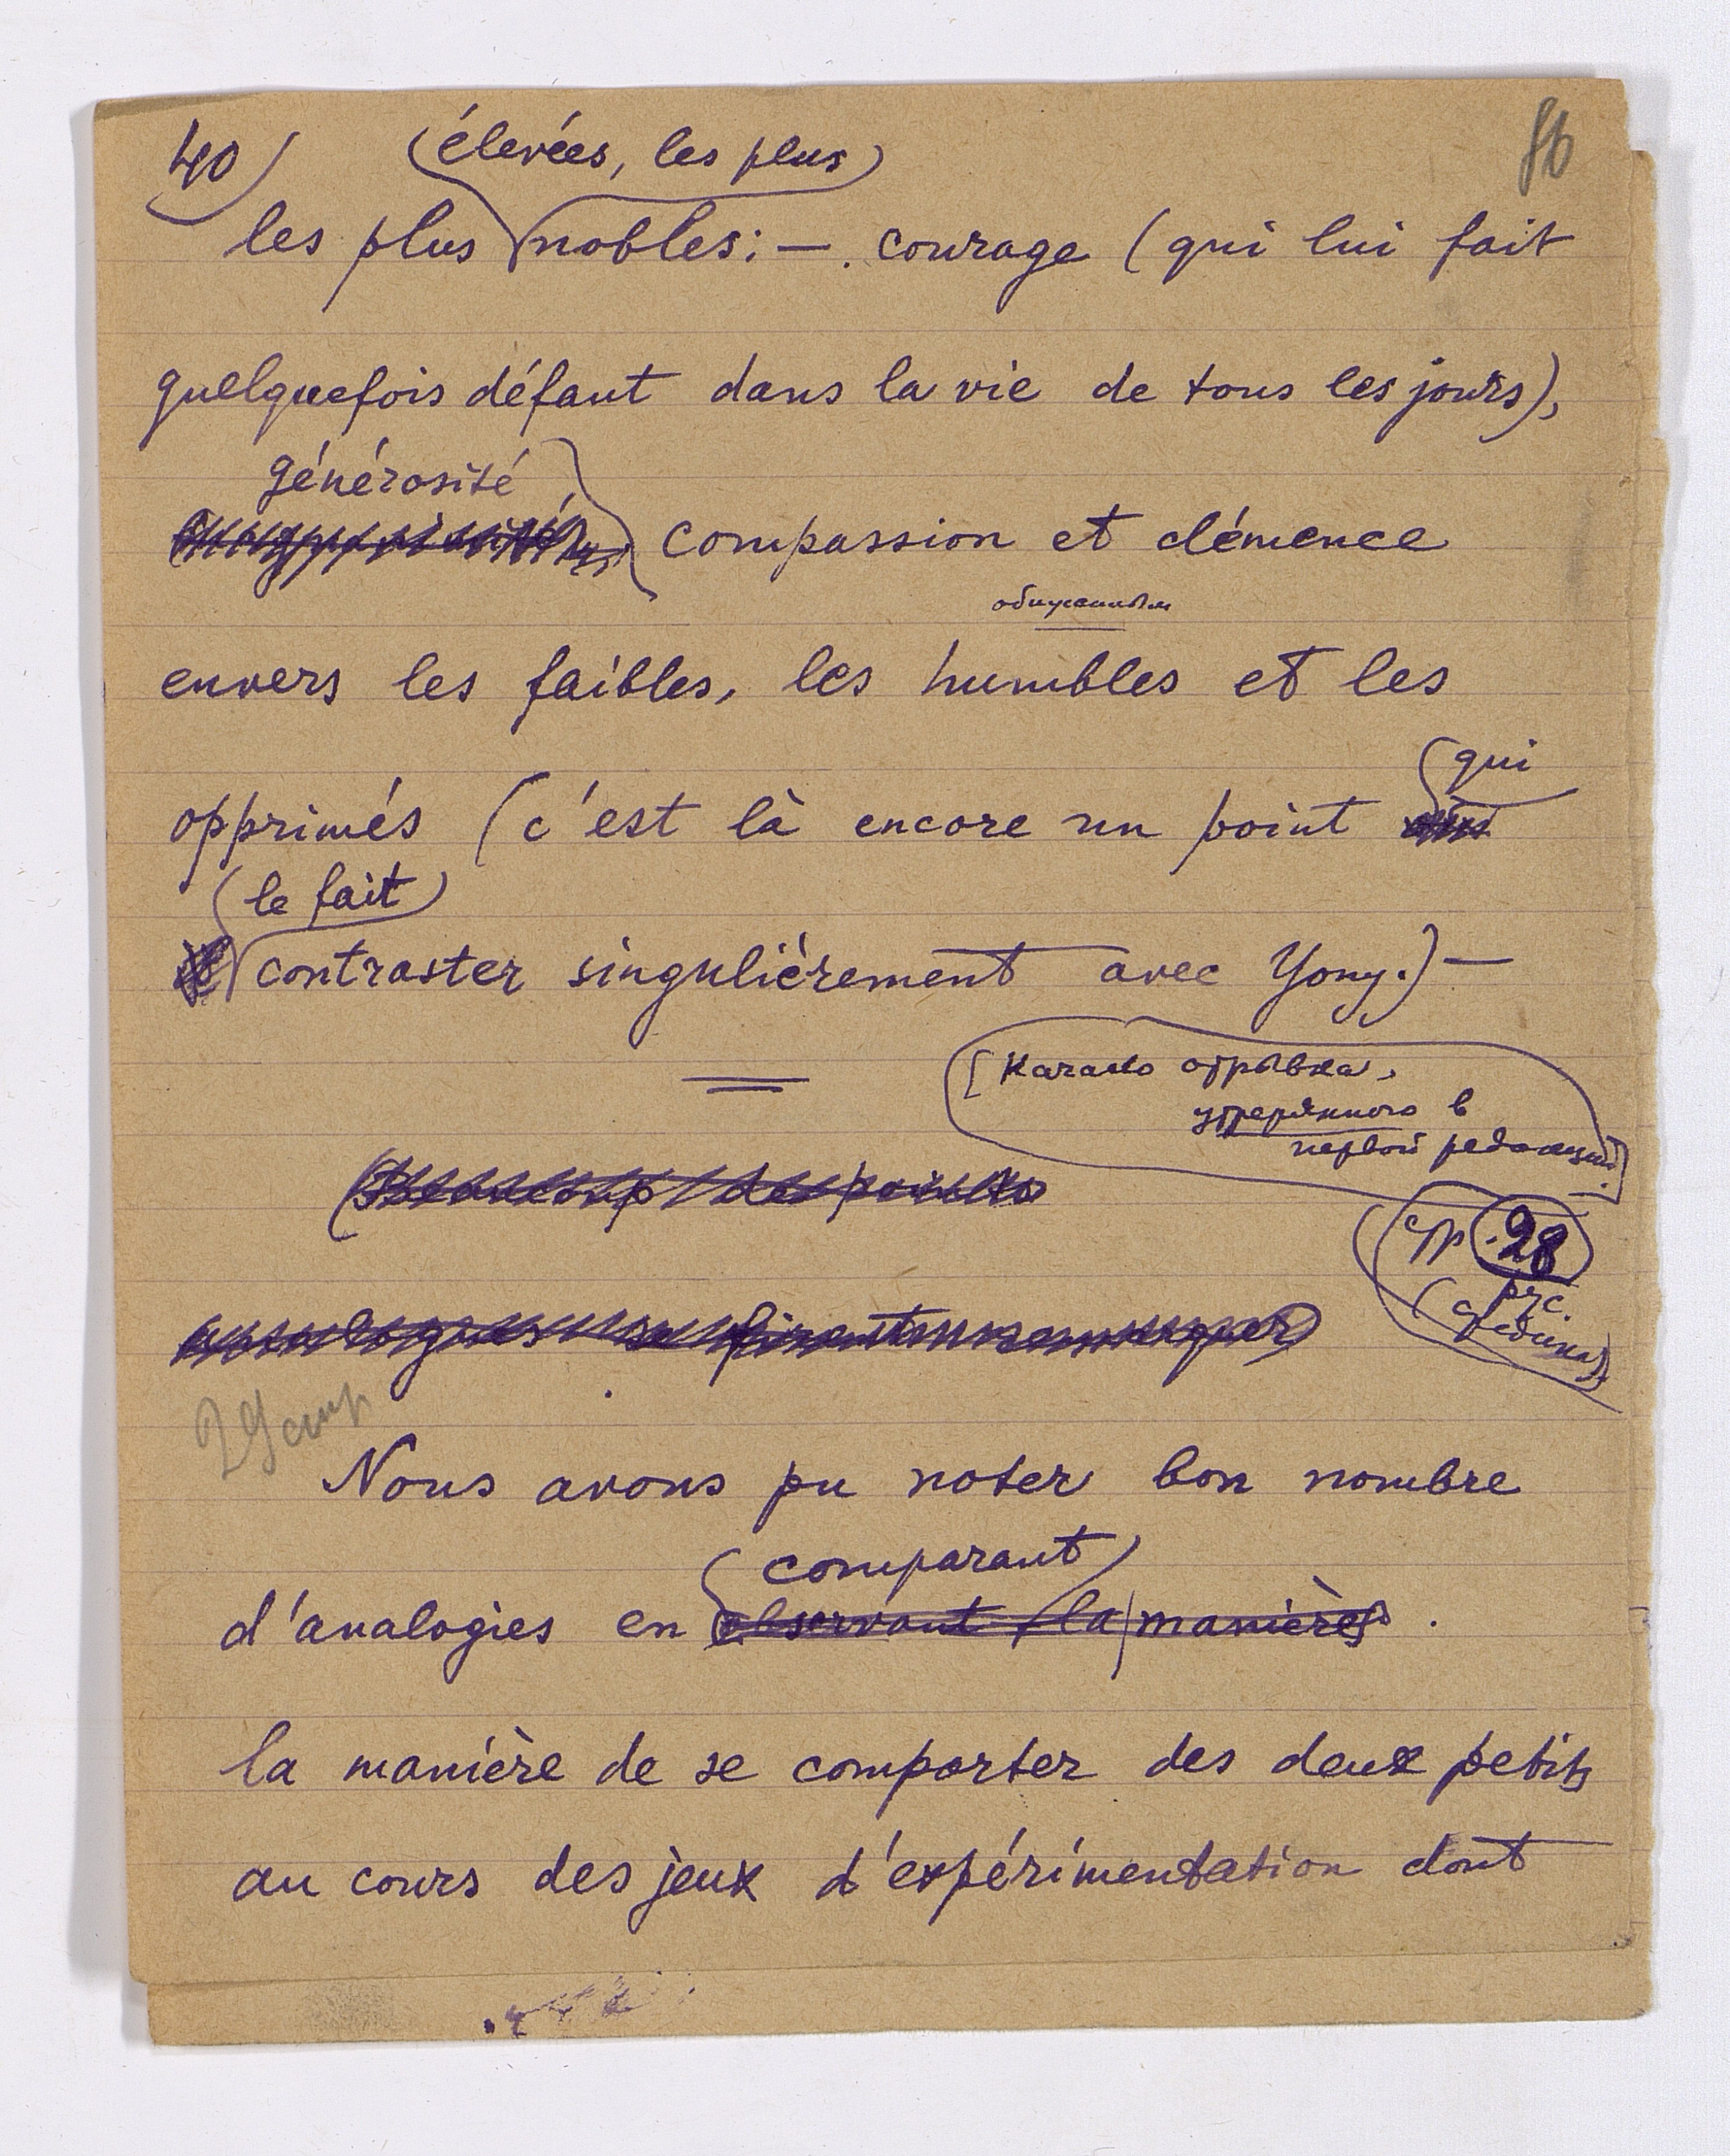 40)
86
élevées, les plus
les plus nobles: —. courage (qui lui fait
quelquefois défaut dans la vie de tous les jours),
générosité,
compassion et clémence
обиженным
envers les faibles, les humbles et les
qui
opprimés (c'est là encore un point
le fait
contraster singulièrement avec Yony.) —
[Начало отрывка,
утерянного в
первой редакции.]
Beaucoup de points
стр. 28
analogues se firent remarquer
Nous avons pu noter bon nombre
comparant
d'analogies en observant la manière
la manière de se comporter des deux petits
au cours des jeux d'expérimentation dont